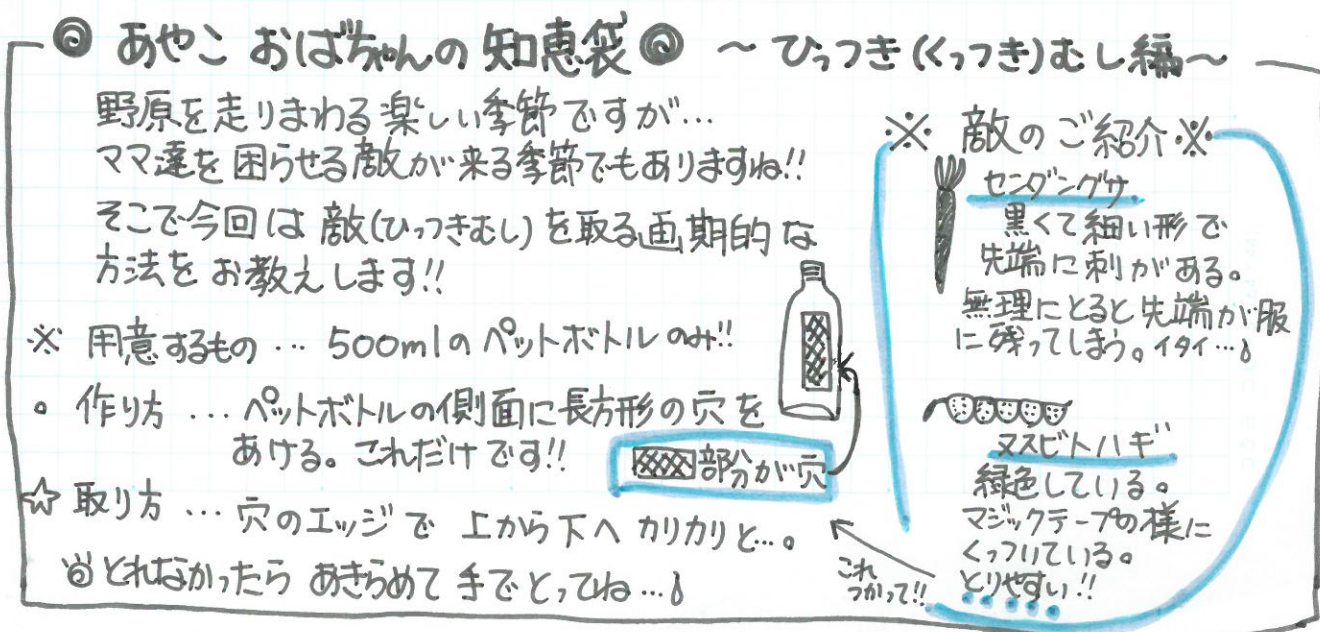 ◎ あやこ おばちゃんの 知恵袋 ◎ ～ ひっつき(くっつき)むし編～
野原を走りまわる楽しい季節ですが…
ママ達を困らせる敵が来る季節でもありますね!!
そこで今回は 敵(ひっつきむし)を取る画期的な
方法をお教えします!!
※ 用意するもの … 500mlのペットボトルのみ!!
。作り方 … ペットボトルの側面に長方形の穴を
あける。これだけです!!
部分が穴
☆ 取り方 … 穴のエッジで 上から下へ カリカリと…。
◎ とれなかったら あきらめて 手でとってね…
※ 敵のご紹介 ※
センダングサ
黒くて細い形で
先端に刺がある。
無理にとると先端が服
に残ってしまう。イタイ…
ヌスビトハギ
緑色している。
マジックテープの様に
くっついている。
とりやすい!!
これ
つかって!!